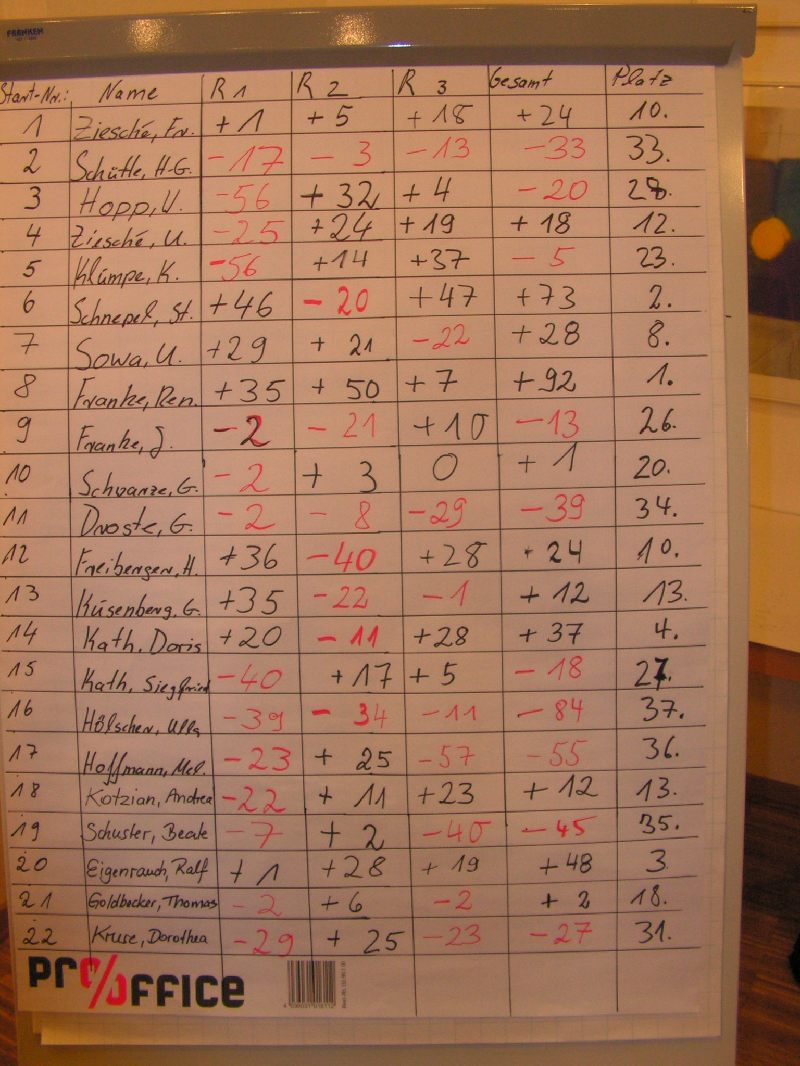 FRANKEN
Start-Nr.: Name R 1 R 2 R 3 Gesamt Platz
1 Ziesché, Fr. +1 +5 +18 +24 10.
2 Schütte, H-G. -17 -3 -13 -33 33.
3 Hopp, U. -56 +32 +4 -20 28.
4 Ziesché, U. -25 +24 +19 +18 12.
5 Klümpe, K. -56 +14 +37 -5 23.
6 Schnepel, St. +46 -20 +47 +73 2.
7 Sowa, U. +29 +21 -22 +28 8.
8 Franke, Ren. +35 +50 +7 +92 1.
9 Franke, J. -2 -21 +10 -13 26.
10 Schwanze, G. -2 +3 0 +1 20.
11 Droste, G. -2 -8 -29 -39 34.
12 Freibergen, H. +36 -40 +28 +24 10.
13 Küsenberg, G. +35 -22 -1 +12 13.
14 Kath, Doris +20 -11 +28 +37 4.
15 Kath, Siegfried -40 +17 +5 -18 27.
16 Hölschen, Ulla -39 -34 -11 -84 37.
17 Hoffmann, Mel. -23 +25 -57 -55 36.
18 Kotzian, Andrea -22 +11 +23 +12 13.
19 Schuster, Beate -7 +2 -40 -45 35.
20 Eigenrauch, Ralf +1 +28 +19 +48 3
21 Goldbecker, Thomas -2 +6 -2 +2 18.
22 Kruse, Dorothea -29 +25 -23 -27 31.
pro/office